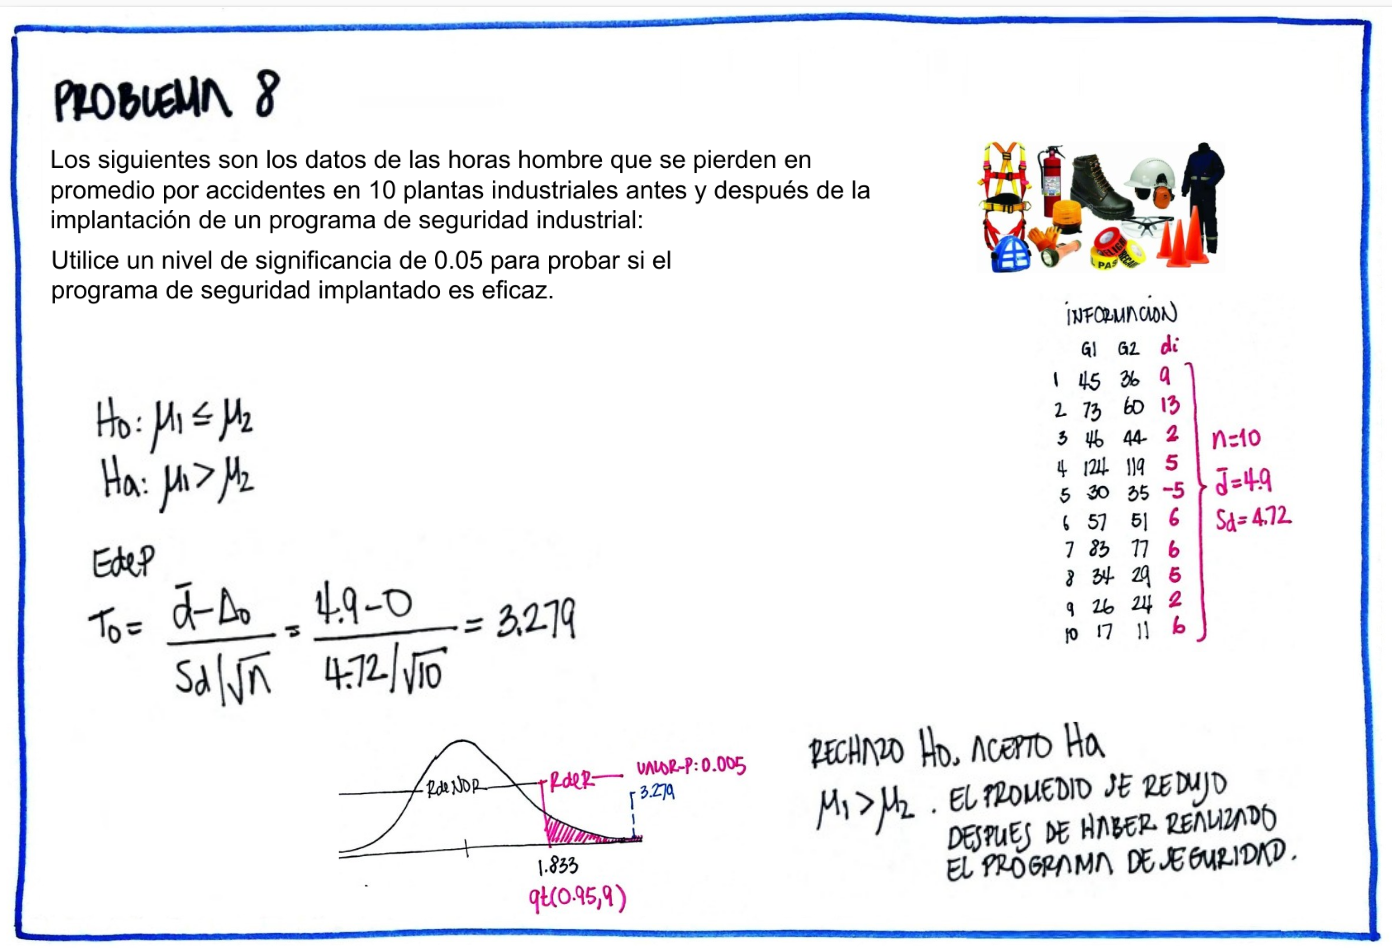 PROBLEMA 8
Los siguientes son los datos de las horas hombre que se pierden en
promedio por accidentes en 10 plantas industriales antes y después de la
implantación de un programa de seguridad industrial:
Utilice un nivel de significancia de 0.05 para probar si el
programa de seguridad implantado es eficaz.
L PAS
INFORMACION
G1 G2 di
1 45 36 9
2 73 60 13
3 46 44 2
4 124 119 5
5 30 35 -5
6 57 51 6
7 83 77 6
8 34 29 5
9 26 24 2
10 17 11 6
n=10
d̄=4.9
Sd=4.72
Ho: μ1 ≤ μ2
Ha: μ1 > μ2
EdeP
To = d̄-Δo / Sd/√n = 4.9-0 / 4.72/√10 = 3.279
RdeNOR
RdeR
VALOR-P: 0.005
3.279
1.833
qt(0.95,9)
RECHAZO Ho, ACEPTO Ha
μ1 > μ2 . EL PROMEDIO SE REDUJO
DESPUES DE HABER REALIZADO
EL PROGRAMA DE SEGURIDAD.